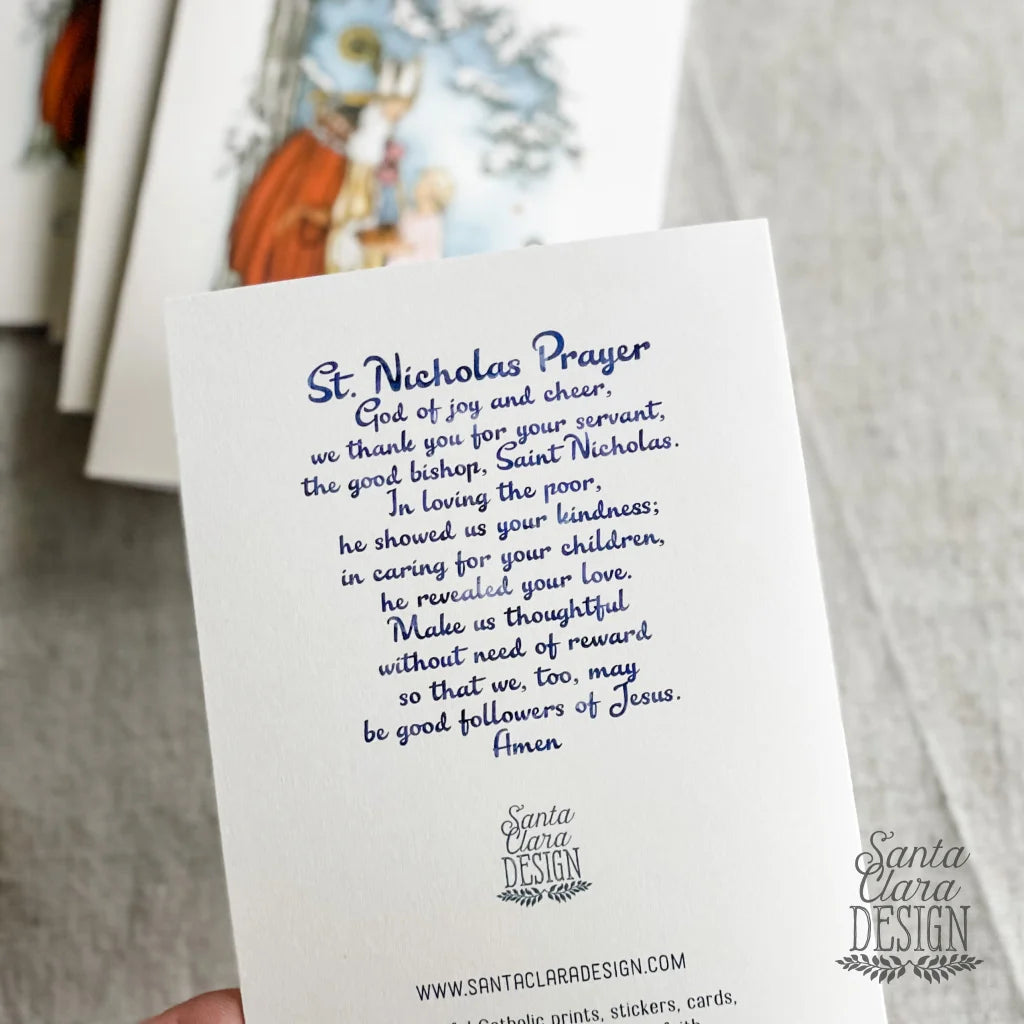 St. Nicholas Prayer
God of joy and cheer,
we thank you for your servant,
the good bishop, Saint Nicholas.
In loving the poor,
he showed us your kindness;
in caring for your children,
he revealed your love.
Make us thoughtful
without need of reward
so that we, too, may
be good followers of Jesus.
Amen
Santa
Clara
DESIGN
WWW.SANTACLARADESIGN.COM
Catholic prints, stickers, cards,
Santa
Clara
DESIGN